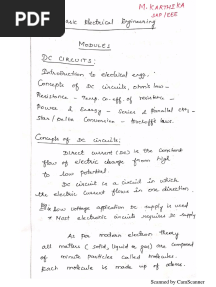 PDF
M. KARTHIKA
SAP/EEE
Basic Electrical Engineering
MODULE 1
DC CIRCUITS:
Introduction to electrical engg.-
Concepts of DC circuits, ohm's law-
Resistance - Temp. co. eff. of resistance -
Power & Energy - Series & Parallel ckts,
Star/Delta Conversion - Kirchoff's laws.
Concepts of DC circuits:
Direct current (DC) is the constant
flow of electric charge from high
to low potential.
DC circuit is a circuit in which
the electric current flows in one direction.
Low voltage application DC supply is used
& Most electronic circuits requires DC supply
As per modern electron theory
all matters (solid, liquid & gas) are composed
of minute particles called molecules.
Each molecule is made up of atoms.
Scanned by CamScanner